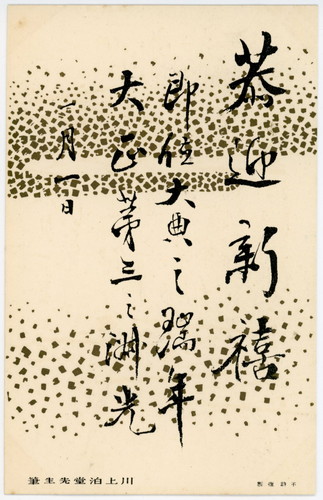 恭迎新禧
即位大典之瑞年
大正第三之淑光
一月一日
不許複製
川上泊堂先生筆